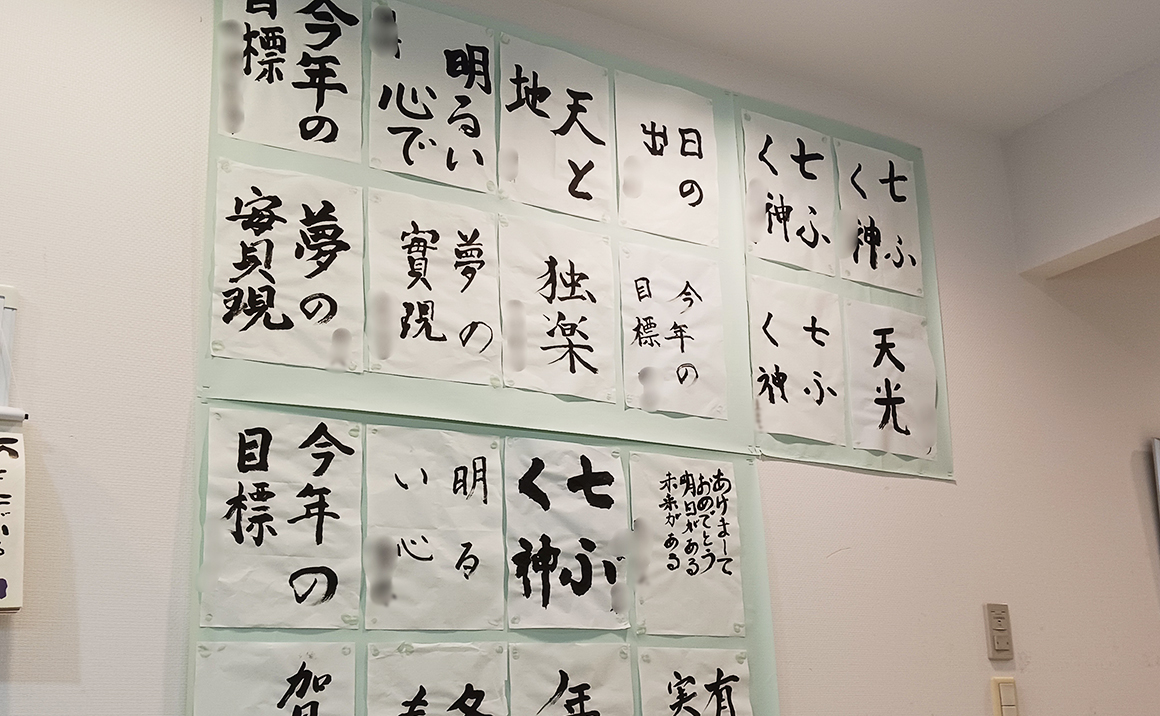 今年の
目標
明るい
心で
天と
地
日の
出
七ふ
く神
七ふ
く神
夢の
實現
夢の
實現
独楽
今年の
目標
七ふ
く神
天光
今年の
目標
明る
い心
七ぶ
く神
あけまして
おめでとう
明日がある
未来がある
賀
冬
年
有
実